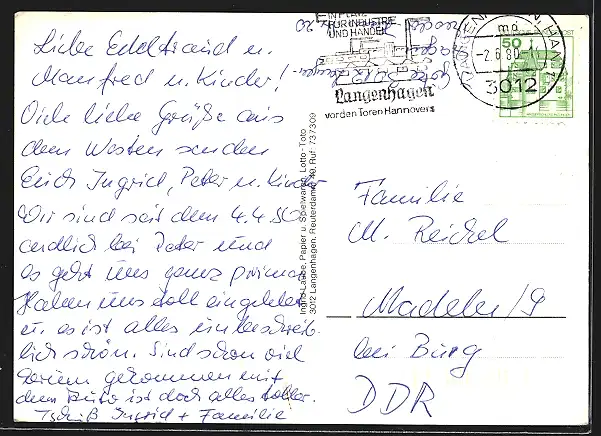 Liebe Edeltraud u.
Manfred u. Kinder!
Viele liebe Grüße aus
dem Westen senden
Euch Ingrid, Peter u. Kinder
Wir sind seit dem 4.4.80
endlich bei Peter und
es geht uns ganz prima.
Haben uns toll eingelebt
u. es ist alles unbeschreib-
lich schön. Sind schon viel
herum gekommen mit
dem Auto ist doch alles toller.
Tschüß Ingrid + Familie
Ingrid Laube, Papier u. Spielwaren, Lotto-Toto
3012 Langenhagen, Reuterdamm 49, Ruf: 737309
EIN PLATZ
FÜR INDUSTRIE
UND HANDEL
Langenhagen
vor den Toren Hannovers
LANGENHAGEN, HAN
md
-2.6.80-
3012
50
Familie
M. Reichel
Madel b./9
bei Burg
DDR